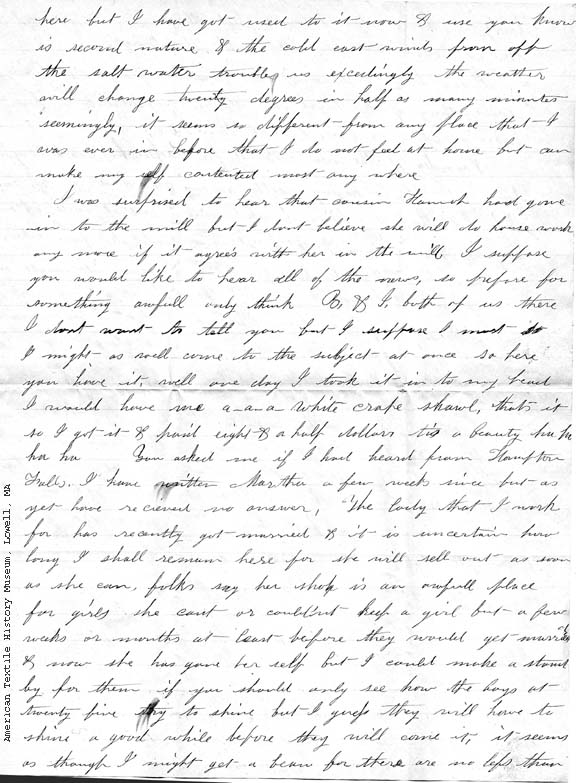 here but I have got used to it now & use you know
is second nature & the cold east winds from off
the salt water troubles us exceedingly the weather
will change twenty degrees in half as many minutes
seemingly, it seems so different from any place that I
was ever in before that I do not feel at home but can
make my self contented most any where
I was surprised to hear that cousin Hannah had gone
in to the mill but I dont believe she will do house work
any more if it agrees with her in the mill I suppose
you would like to hear all of the news, so prepare for
something awfull only think B. & I. both of us there
I dont want to tell you but I suppose I must so
I might as well come to the subject at once so here
you have it, well one day I took it in to my head
I would have me a-a-a White crape shawl, thats it
so I got it & paid eight & a half dollars tis a beauty ha ha
ha ha You asked me if I had heard from Hampton
Falls. I have written Marthea a few weeks since but as
yet have recieved no answer, The lady that I work
for has recently got married & it is uncertain how
long I shall remain here for she will sell out as soon
as she can, folks say her shop is an awfull place
for girls she cant or couldnt keep a girl but a few
weeks or months at least before they would get married
& now she has gone her self but I could make a stand
by for them if you should only see how the boys at
twenty five try to shine but I guess they will have to
shine a good while before they will come it, it seems
as though I might get a beau for there are no less than
American Textile History Museum, Lowell, MA